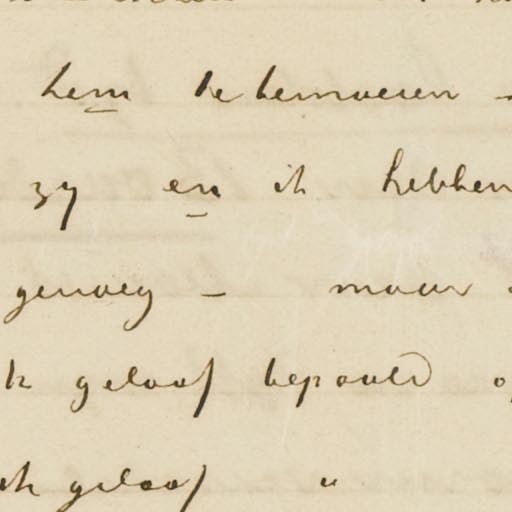 hem te bemoeien -
zy en ik hebben
genoeg - maar
ik geloof bepaald o
ik geloof "